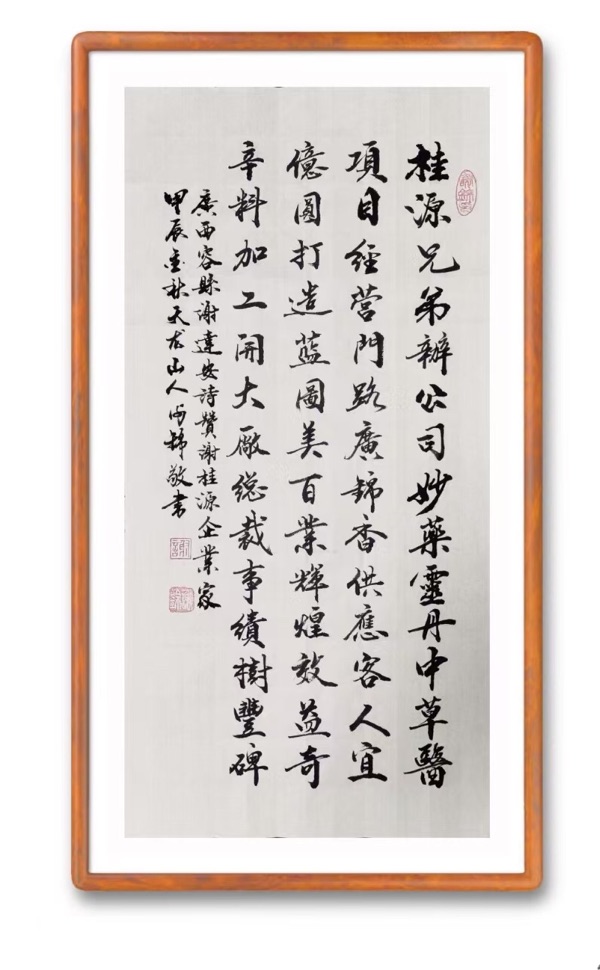 桂源兄弟辦公司妙藥靈丹中草醫
項目經營門路廣錦香供應客人宜
億圓打造藍圖美百業輝煌效益奇
辛料加工開大廠總裁事績樹豐碑
廣西容縣謝達安詩贊謝桂源企業家
甲辰金秋天龙山人錦敬書